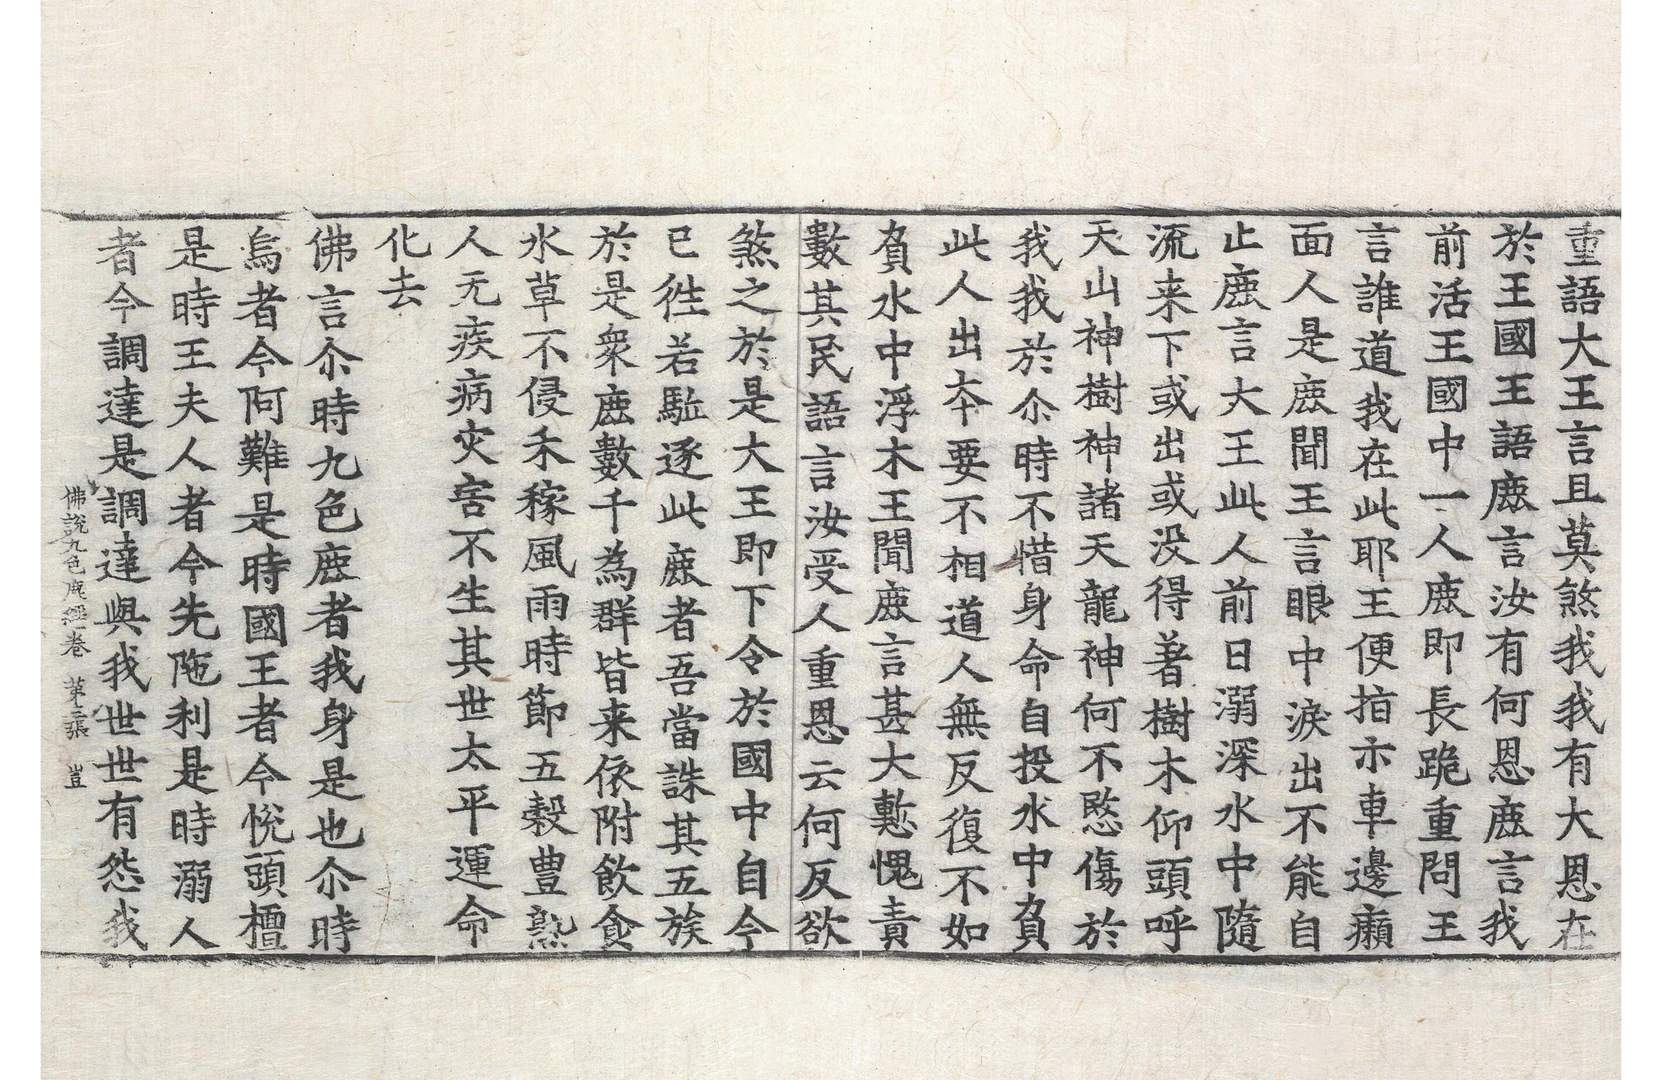 重語大王言且莫煞我我有大恩在
於王國王語鹿言汝有何恩鹿言我
前活王國中一人鹿即長跪重問王
言誰道我在此耶王便指示車邊癩
面人是鹿聞王言眼中淚出不能自
止鹿言大王此人前日溺深水中隨
流来下或出或没得著樹木仰頭呼
天山神樹神諸天龍神何不愍傷於
我我於尒時不惜身命自投水中負
此人出夲要不相道人無反復不如
負水中浮木王聞鹿言甚大慙愧責
數其民語言汝受人重恩云何反欲
煞之於是大王即下令於國中自今
已徃若駈逐此鹿者吾當誅其五族
於是衆鹿數千為群皆来依附飲食
水草不侵禾稼風雨時節五穀豊熟
人无疾病灾害不生其世太平運命
化去
佛言尒時九色鹿者我身是也尒時
烏者今阿難是時國王者今恱頭檀
是時王夫人者今先陁利是時溺人
者今調達是調達與我世世有怨我
佛說九色鹿經卷 第三張 豈